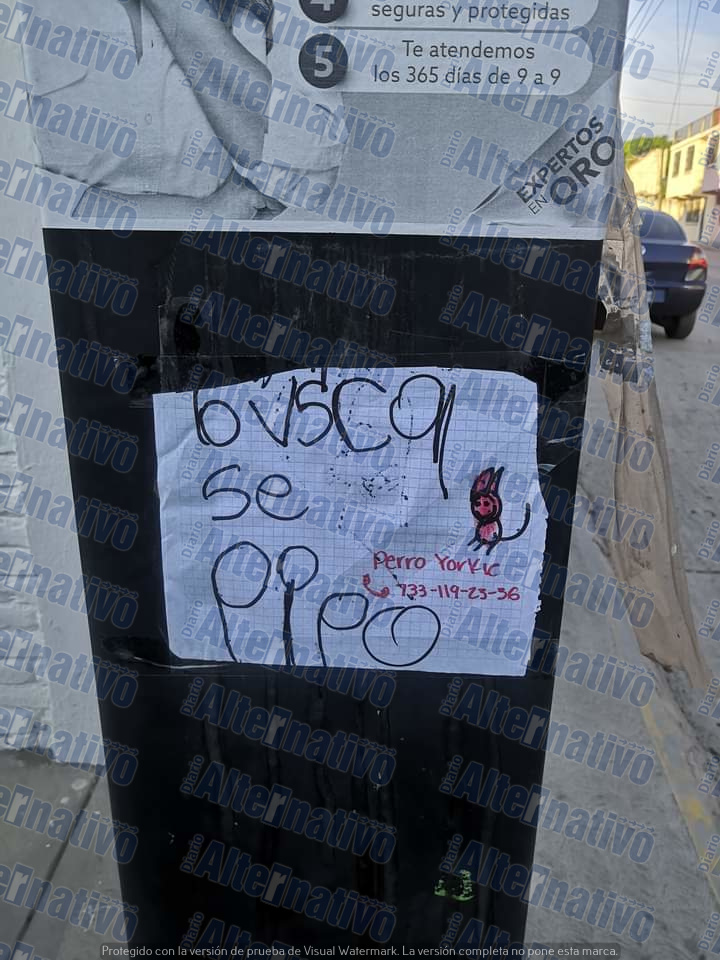 seguras y protegidas
5
Te atendemos
los 365 días de 9 a 9
EXPERTOS
EN ORO
busca
se
Pipo
Perro Yorkie
733-119-23-36
Diario
Alternativo
Protegido con la versión de prueba de Visual Watermark. La versión completa no pone esta marca.